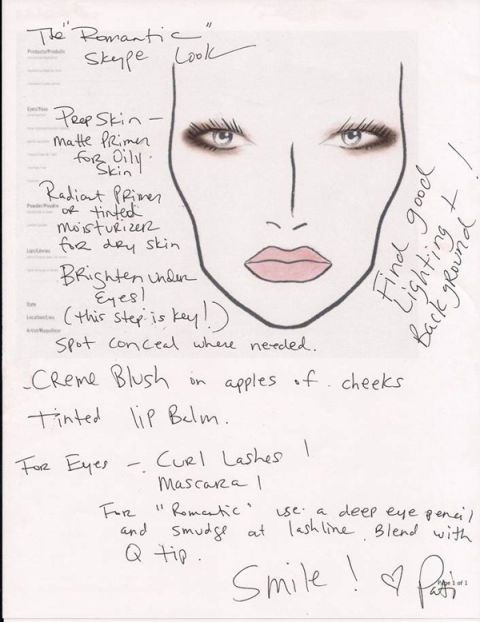 The "Romantic"
Skype Look
Products/Produits
Prep Skin –
matte Primer
for Oily
Skin!
Radiant Primer
or tinted
moisturizer
for dry skin
Brighten under
Eyes!
(this step is key!)
Spot conceal where needed.
Date
Find good
Lighting +
Background!
-Creme Blush on apples of cheeks
Tinted lip Balm.
For Eyes – Curl Lashes!
Mascara!
For "Romantic" use a deep eye pencil
and smudge at lashline. Blend with
Q tip.
Smile! ♡ Pati
Page 1 of 1